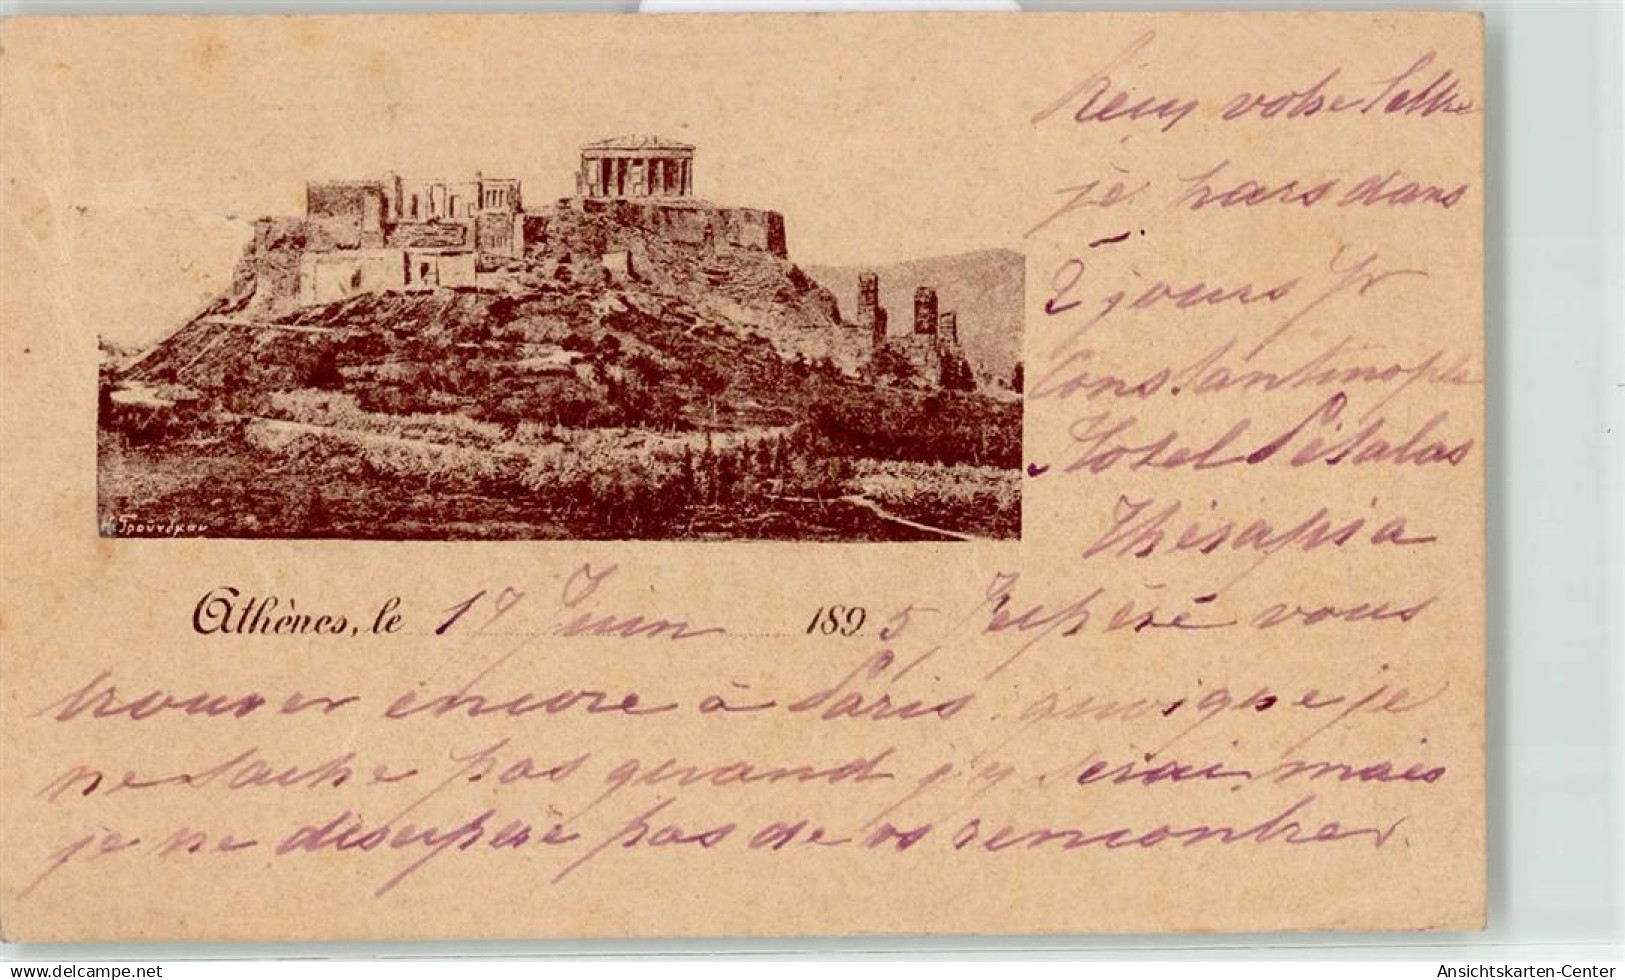 Reçu votre lettre
je pars dans
2 jours pr
Constantinople
Hotel Pétalas
Thérapia
Α. Γρούνδμαν
Athènes, le 17 Juin 1895 J'espère vous
trouver encore à Paris quoique je
ne sache pas quand j'y serai mais
je ne désespère pas de vs rencontrer
delcampe.net
Ansichtskarten-Center